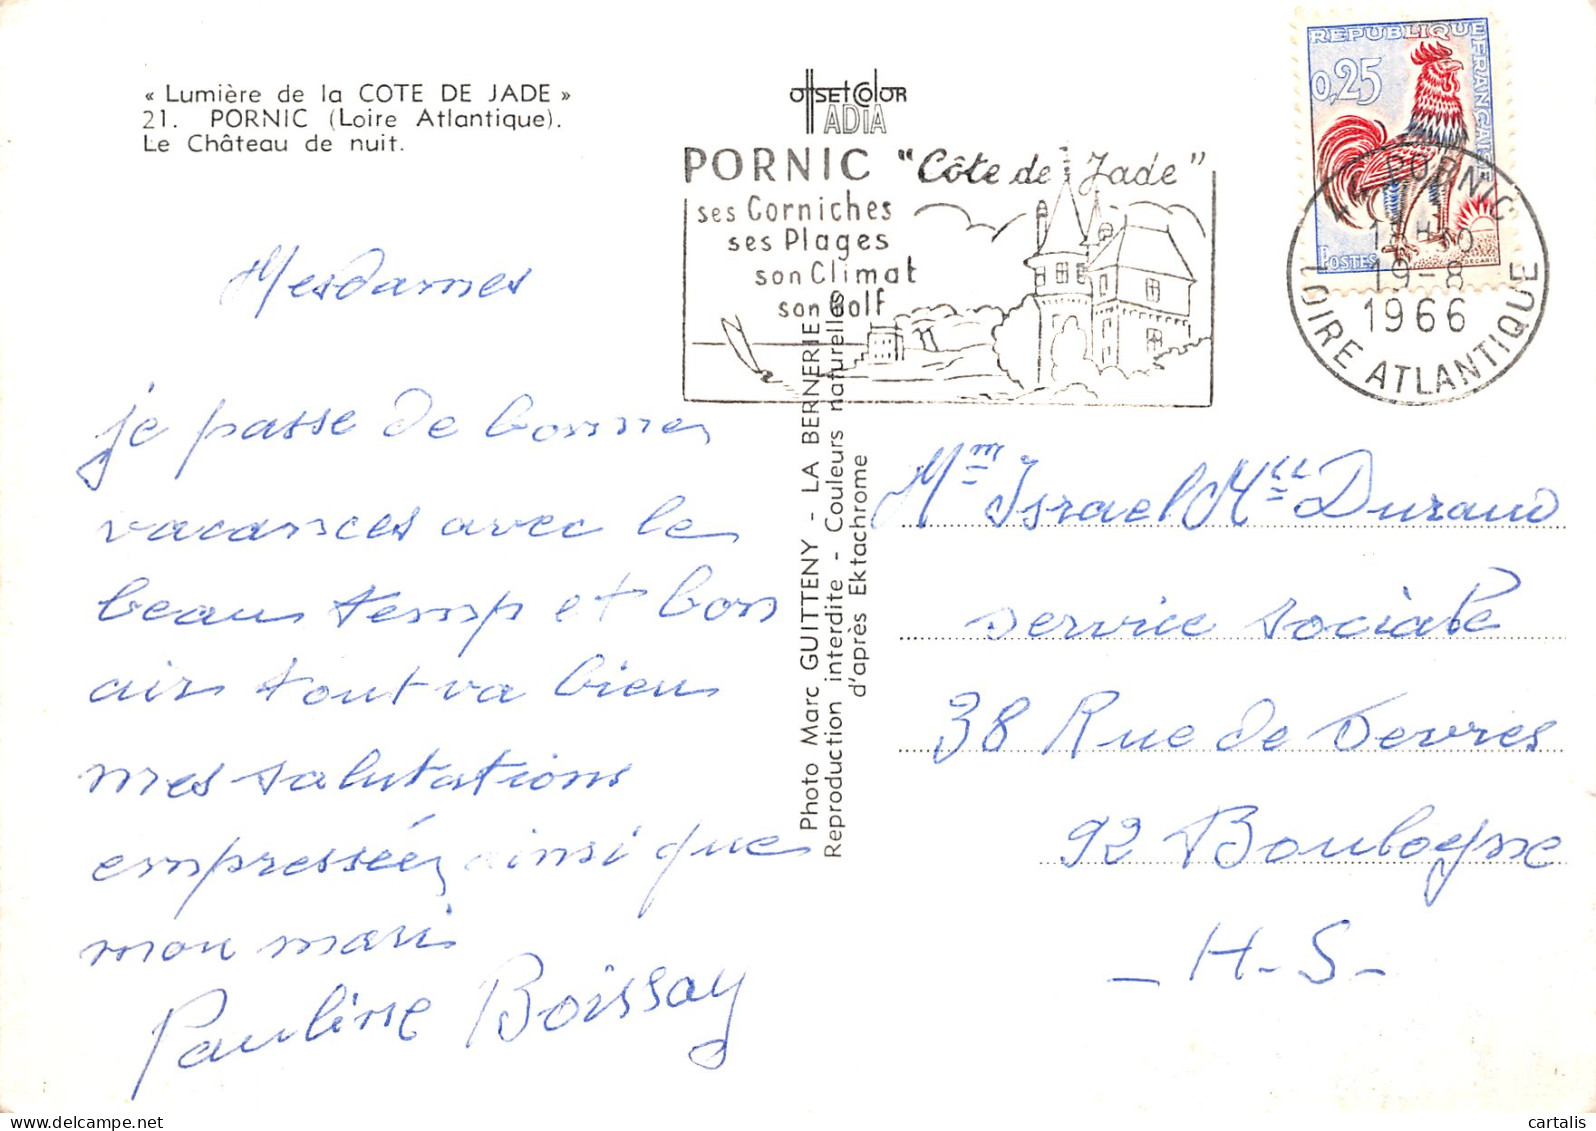 « Lumière de la COTE DE JADE »
21. PORNIC (Loire Atlantique).
Le Château de nuit.
offset color
ADIA
PORNIC "Côte de Jade"
ses Corniches
ses Plages
son Climat
son Golf
REPUBLIQUE FRANÇAISE
0,25
POSTES
DECARIS
44 PORNIC
19-8
1966
LOIRE ATLANTIQUE
Mesdames
je passe de bonnes
vacances avec le
beau temps et bon
air tout va bien
mes salutations
empressées ainsi que
mon mari
Pauline Boissay
Photo Marc GUITTENY - LA BERNERIE
Reproduction interdite - Couleurs naturelles
d'après Ektachrome
Mme Israel Mlle Durand
service sociale
38 Rue de Sevres
92 Boulogne
- H - S -
cartalis